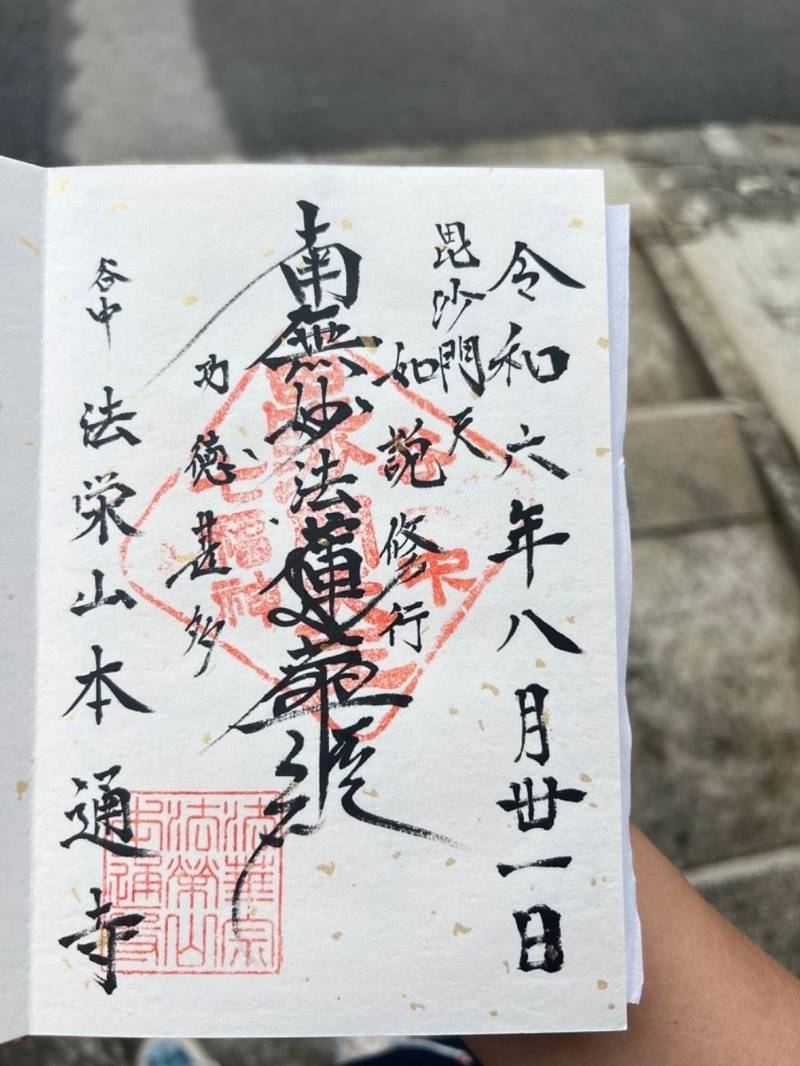 令和六年八月丗一日
毘沙門天
如説修行
南無妙法蓮華経
功徳甚多
谷中 法栄山本通寺
七福神
法華宗
法榮山
本通寺